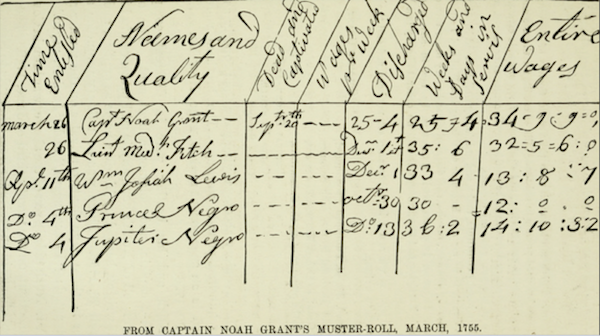 Time Enlisted
Names and Quality
Dead and Captivated
Wages pr Week
Discharg'd
Weeks and Days in Servis
Entire Wages
March 26 Capt Noah Grant Septr 20 25-4 25 4 34-9-9=0
26 Liut Fitch 35: 6 32=5=6:0
Apl. 11th Wm Josiah Lewis Decr. 1 33 4 13:8:7
Do 4th Prince Negro octr 30 30 - 12: 0 0
Do 4 Jupiter Negro Do: 13 36:2 14:10:3:2
FROM CAPTAIN NOAH GRANT'S MUSTER-ROLL, MARCH, 1755.